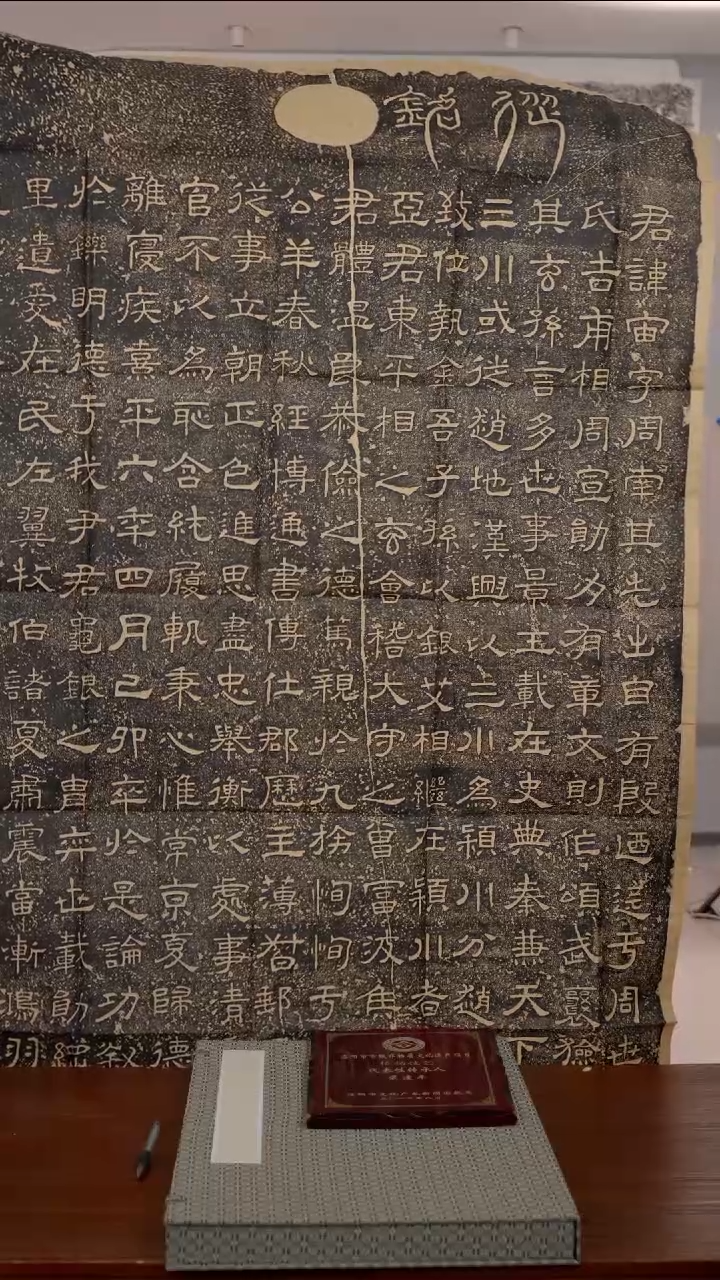 銘
君諱宙字周南其先出自有殷迺迄于周世
氏吉甫相周宣勛力有章文則作頌武襄獫
其玄孫言多世事景王載在史典秦兼天下
三川或徙趙地漢興以三川為潁川分趙
致位執金吾子孫以銀艾相繼在潁川者
亞君東平相之玄會稽大守之曾富波侯
君體溫良恭儉之德篤親於九族恂恂于
公羊春秋經博通書傳仕郡歷主薄督郵
從事立朝正色進思盡忠舉衡以處事清
官不以為恥含純履軌秉心惟常京夏歸德
離寑疾熹平六年四月己卯卒於是論功敘
於鑠明德于我尹君龜銀之胄弈世載勛
里遺愛在民左翼牧伯諸夏肅震當漸鴻羽
代表性传承人